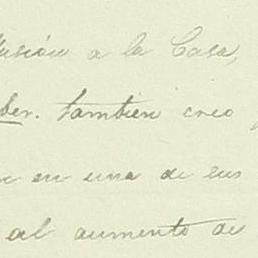 usión a la Casa,
ber. tambien creo
n en una de sus
al aumento de